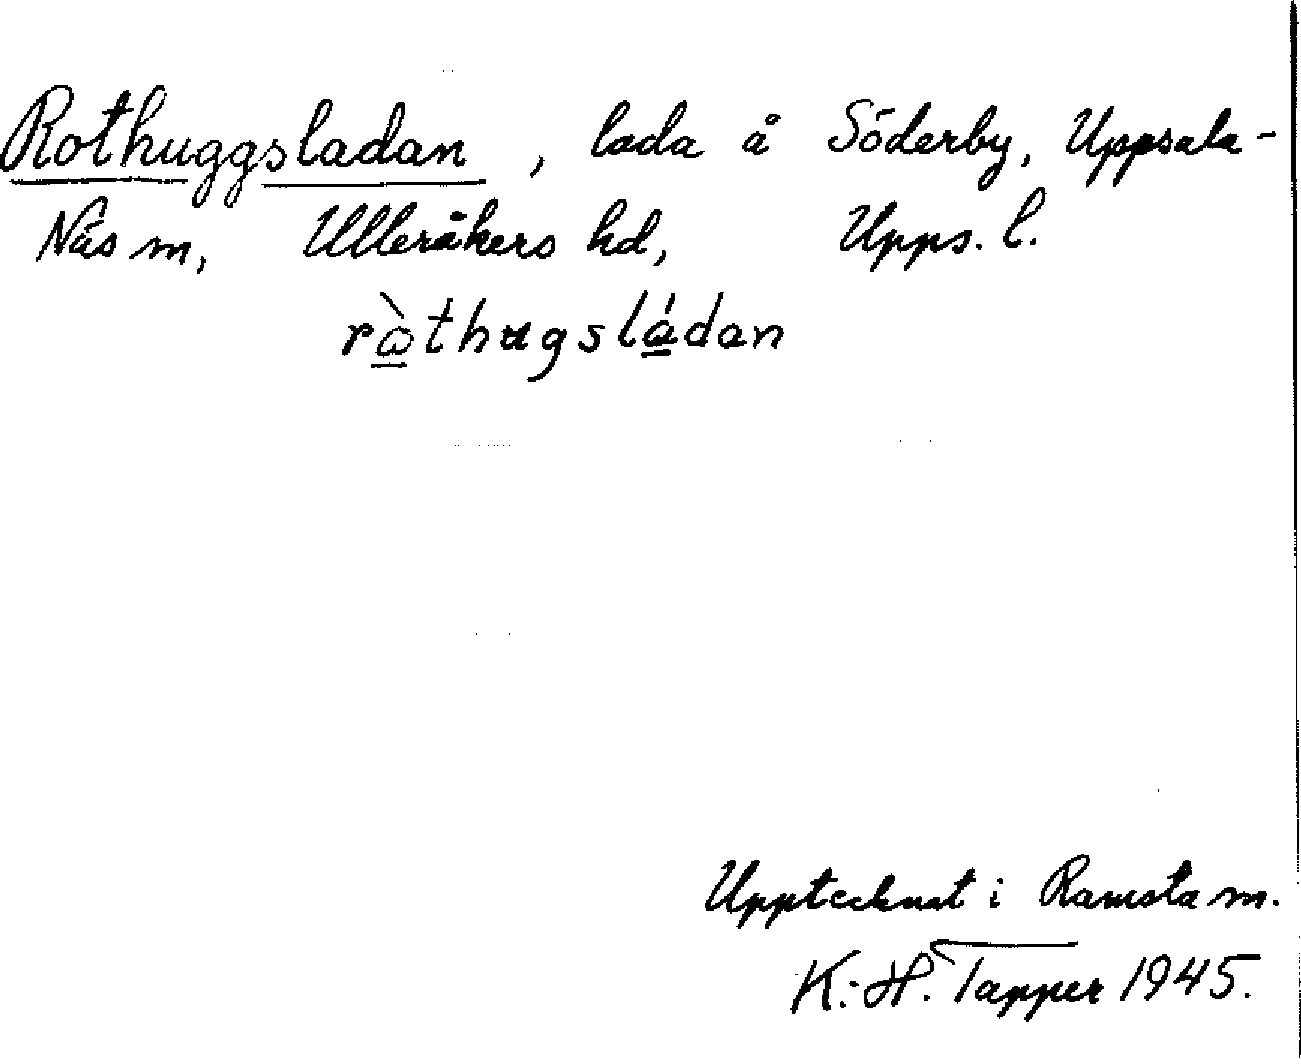 Rothuggsladan, lada å Söderby, Uppsala-
Näs m, Ulleråkers hd, Upps. l.
ròthugsládan
Upptecknat i Ramsta m.
K.-H. Tapper 1945.